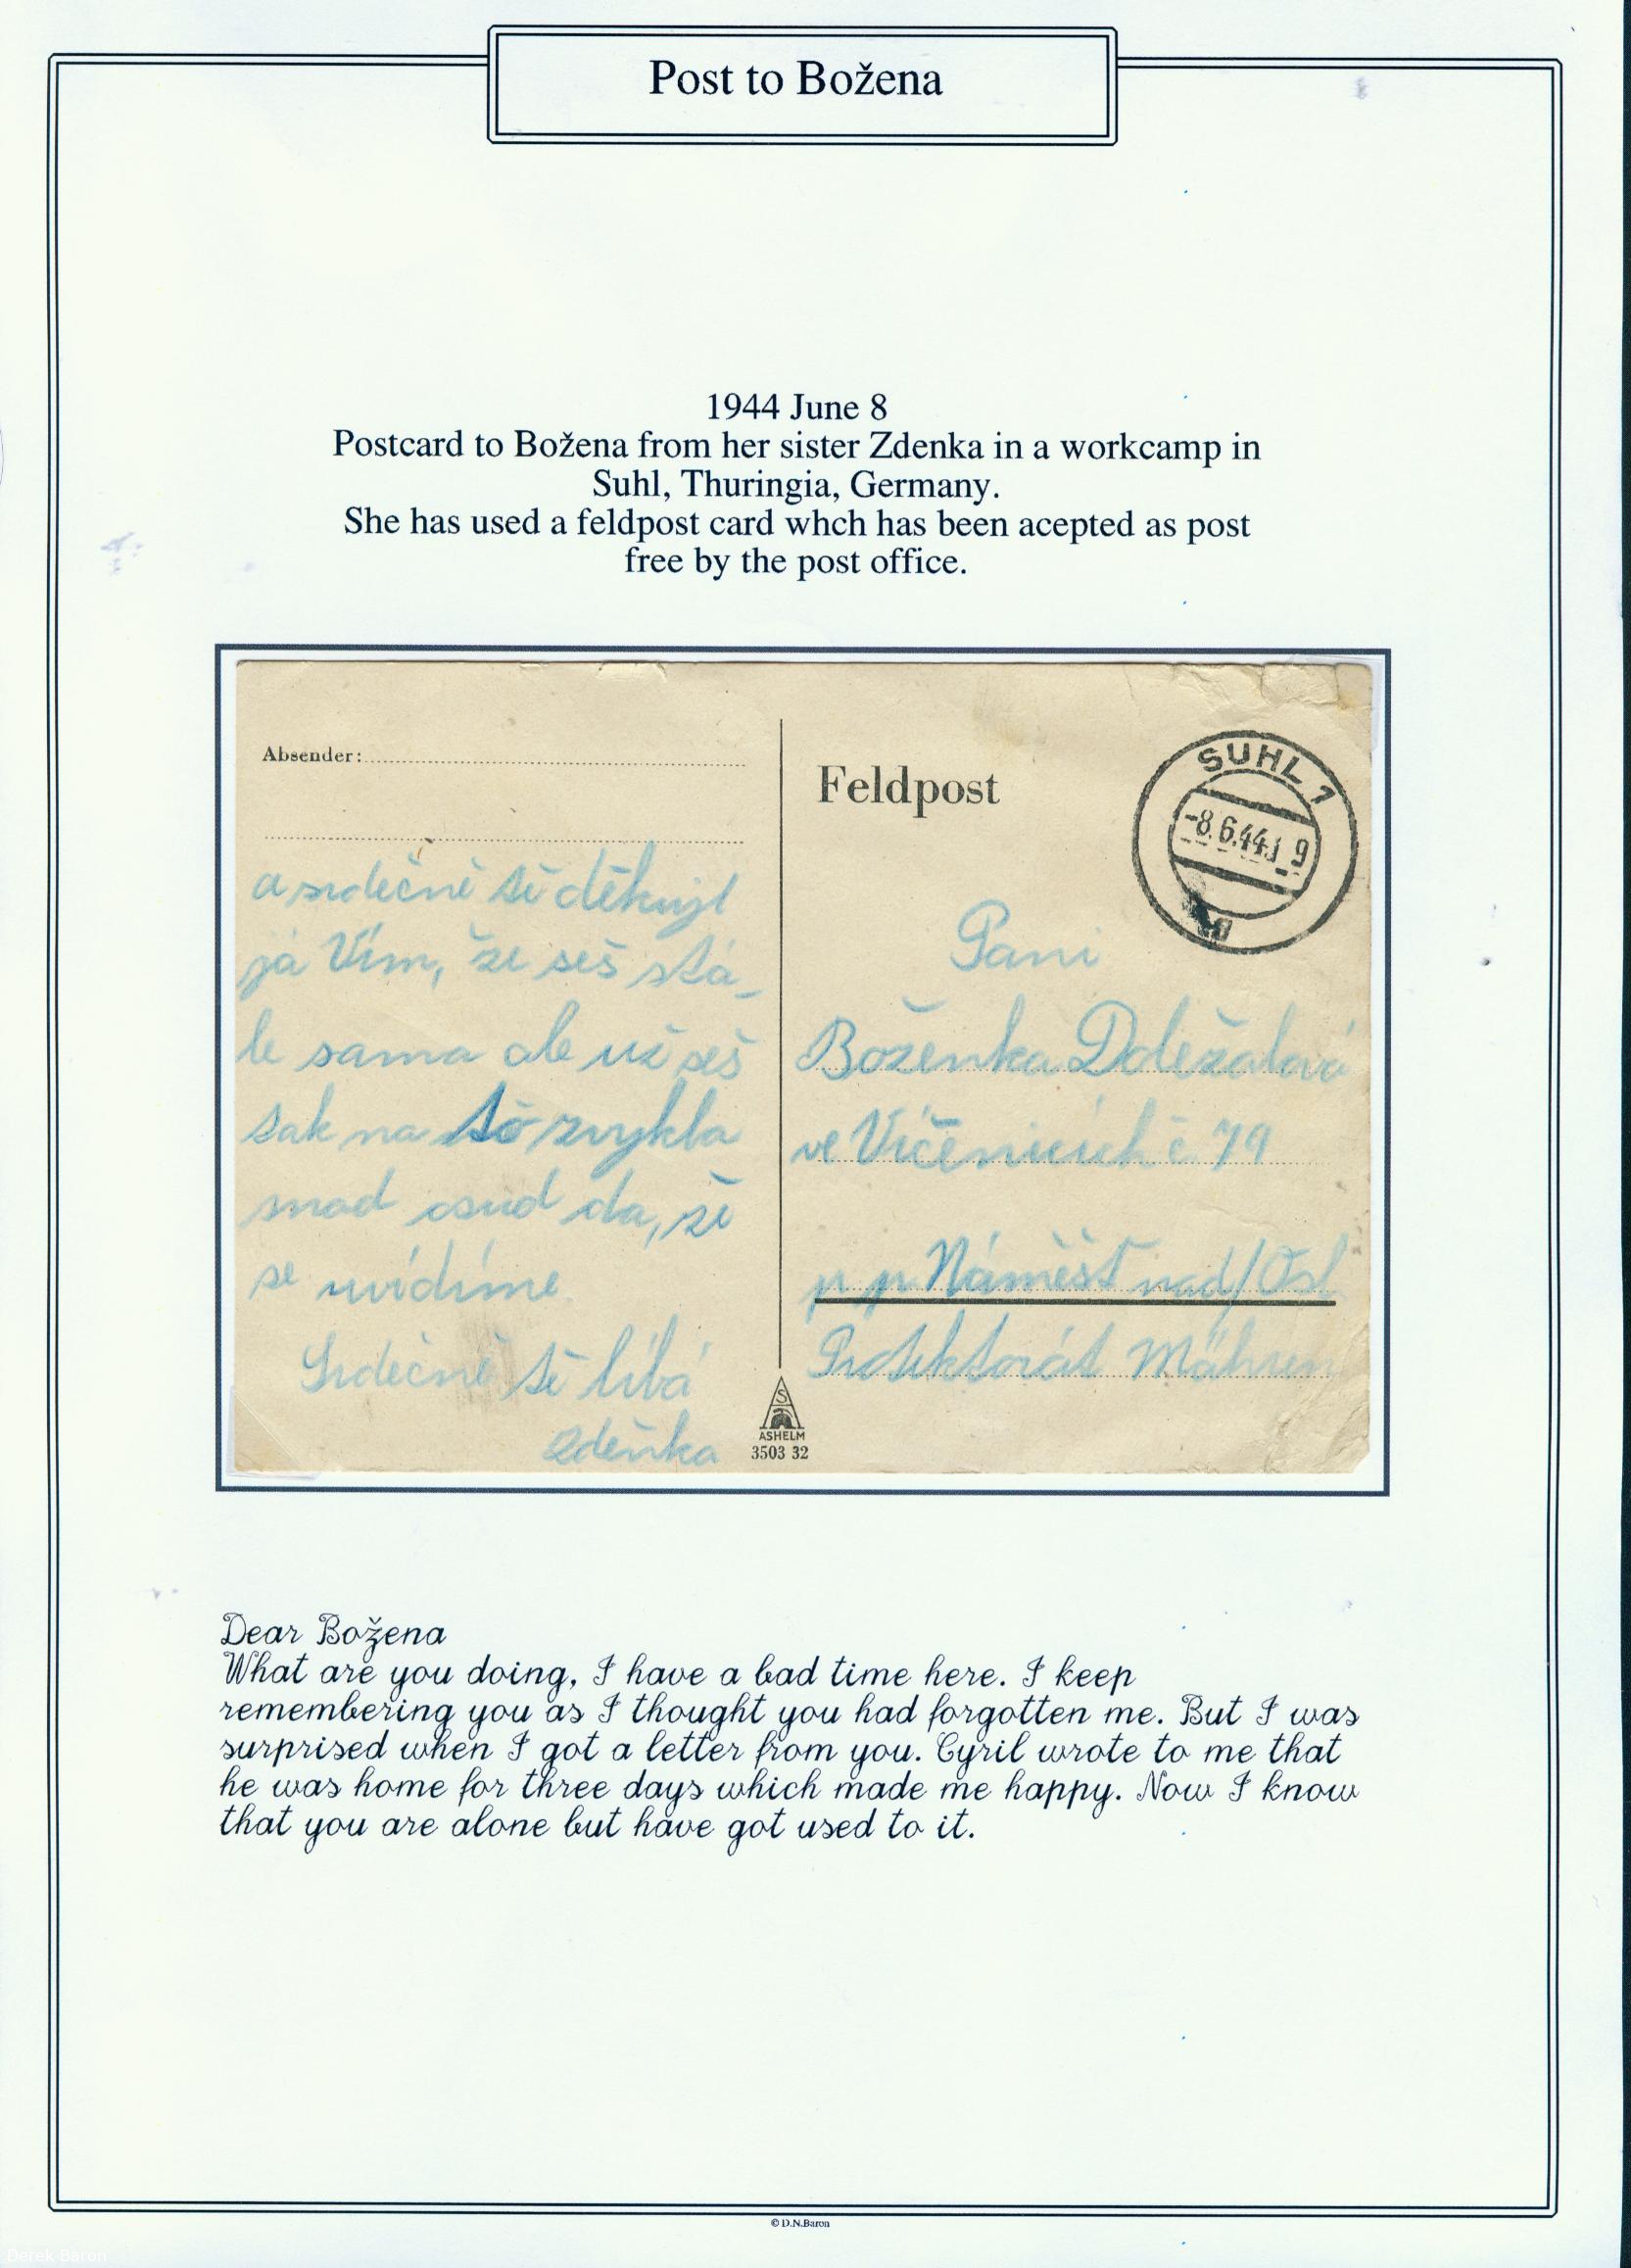 Post to Božena
1944 June 8
Postcard to Božena from her sister Zdenka in a workcamp in
Suhl, Thuringia, Germany.
She has used a feldpost card whch has been acepted as post
free by the post office.
Absender:
a srdečně ti děkuji
já Vím, že seš stá-
le sama ale už seš
tak na to zvykla
snad osud da, že
se uvidíme
Srdečně tě líbá
Zdeňka
Feldpost
SUHL 1
-8.6.44.
Paní
Boženka Doležalová
ve Vičenicích č 79
p. p. Náměšť nad/Osl
Protektorát Mähren
S
ASHELM
3503 32
Dear Božena
What are you doing, I have a bad time here. I keep
remembering you as I thought you had forgotten me. But I was
surprised when I got a letter from you. Cyril wrote to me that
he was home for three days which made me happy. Now I know
that you are alone but have got used to it.
© D.N.Baron
Derek Baron